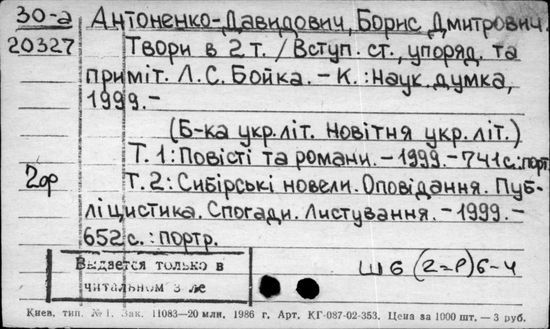 30-а Антоненко-Давидович, Борис Дмитрович.
20327 Твори в 2 т. / Вступ. ст., упоряд. та
приміт. Л.С. Бойка. - К.: Наук. думка,
1999.-
(Б-ка укр. літ. Новітня укр. літ.)
Т. 1: Повісті та романи. - 1999. - 741 с.: порт.
2ор Т. 2: Сибірські новели. Оповідання. Пуб-
ліцистика. Спогади. Листування. - 1999. -
652 с.: портр.
Выдается только в
читальном з ле
Ш6(2=Р)6-4
Киев. тип. № 1. Зак. 11083—20 млн. 1986 г. Арт. КГ-087-02-353. Цена за 1000 шт. — 3 руб.